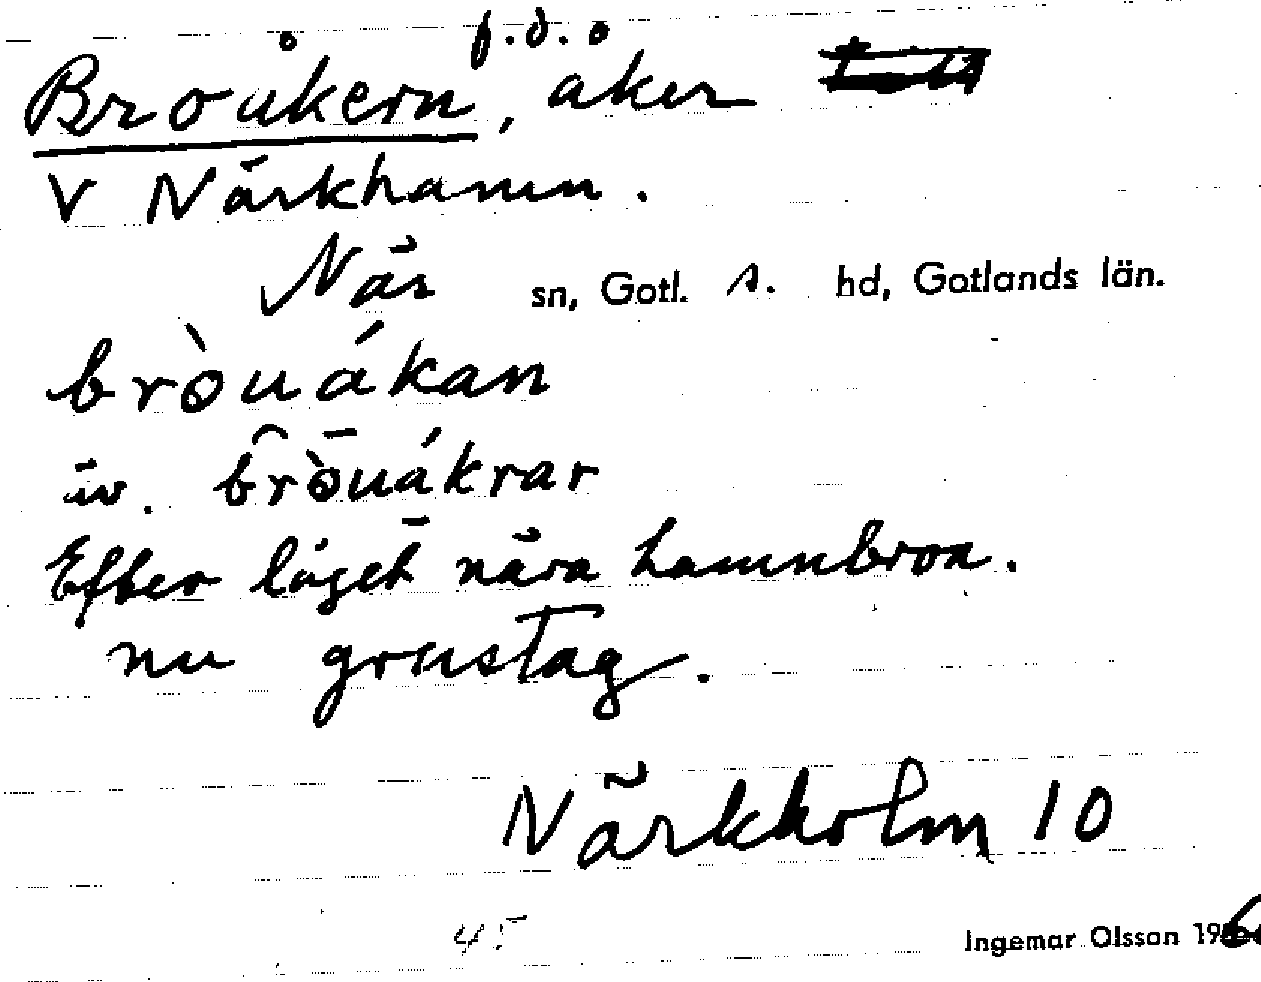 Broåkern, f.d. åker
V Närkhamn.
När sn, Gotl. s. hd, Gotlands län.
bròuákan
äv. bròuákrar
Efter läget nära hamnbron.
nu grustag.
Närkholm 10
45
Ingemar Olsson 196